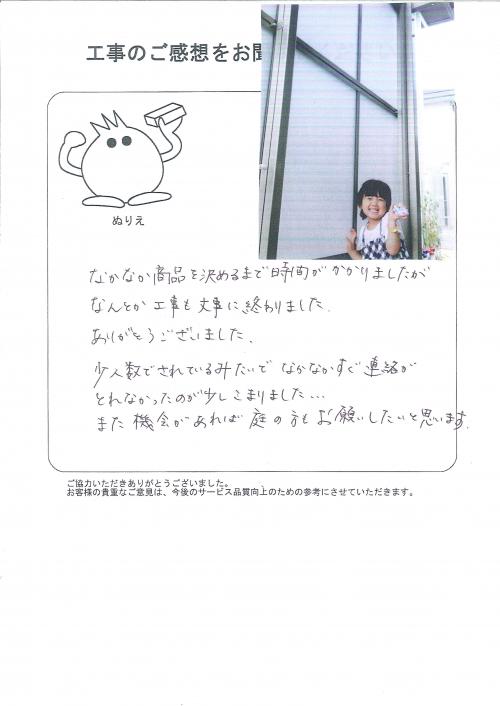 工事のご感想をお聞
ぬりえ
なかなか商品を決めるまで時間がかかりましたが
なんとか工事も丈事に終わりました.
ありがとうございました.
少人数でされているみたいで なかなかすぐ連絡が
とれなかったのが少しこまりました…
また機会があれば庭の方もお願いしたいと思います.
ご協力いただきありがとうございました。
お客様の貴重なご意見は、今後のサービス品質向上のための参考にさせていただきます。